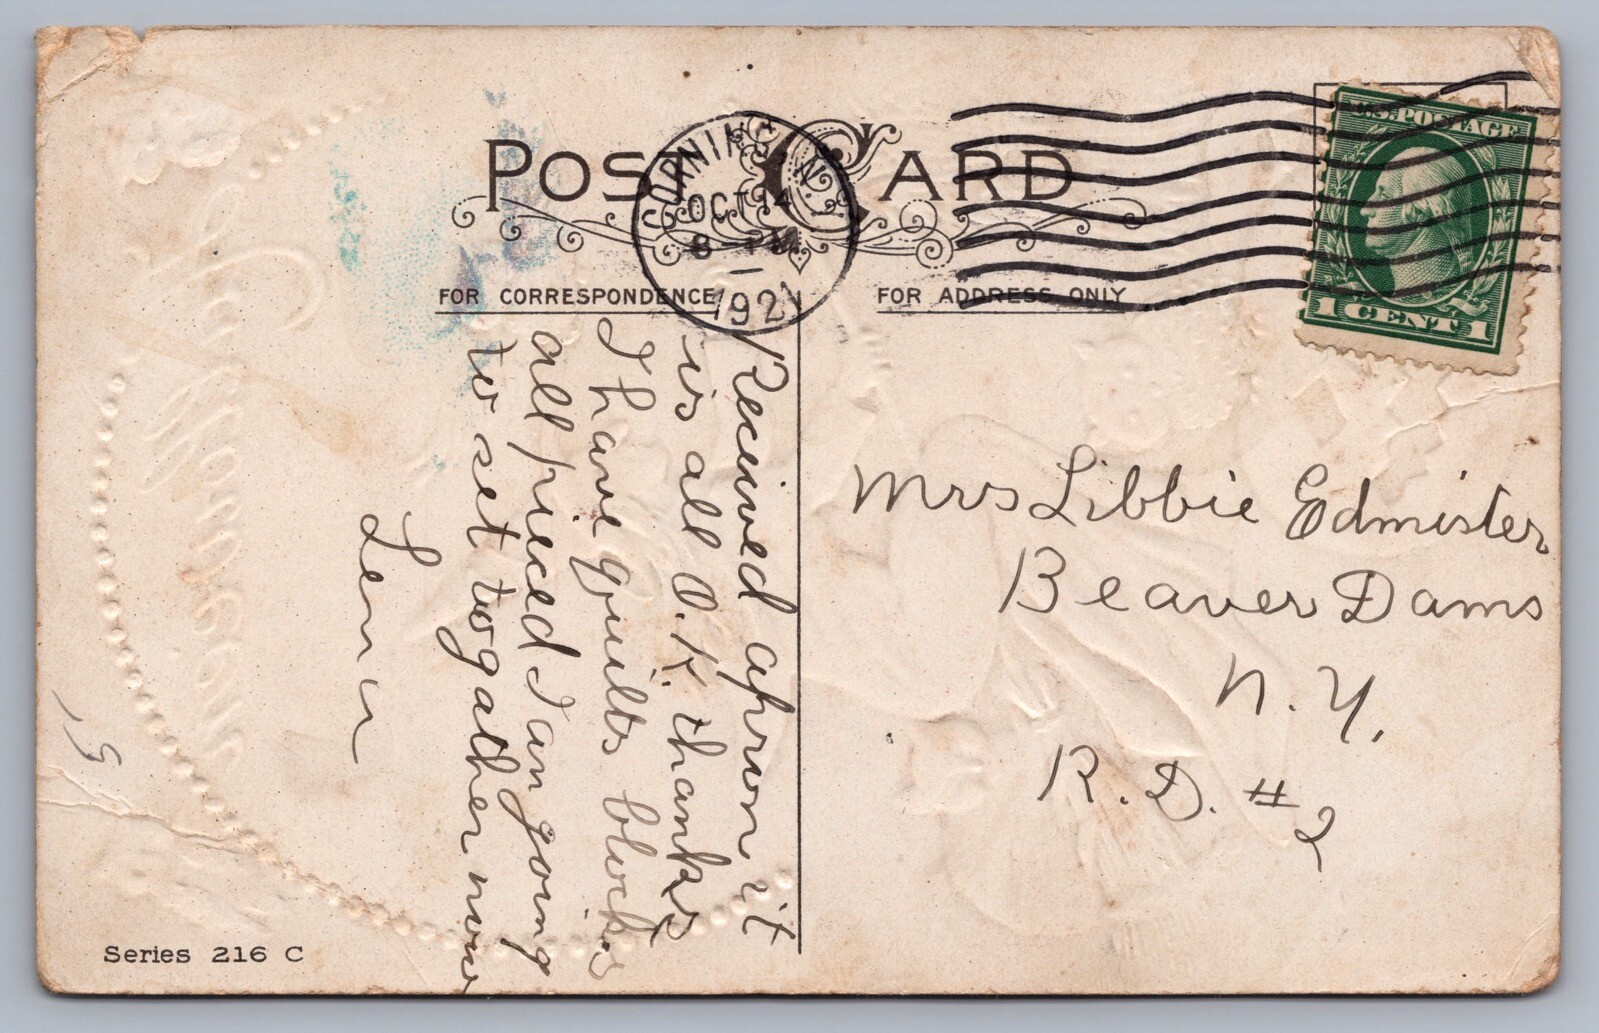 POST CARD
CORNING N.Y.
OCT 14
8 PM
1921
U.S. POSTAGE
1 CENT 1
FOR CORRESPONDENCE
FOR ADDRESS ONLY
Received apron it
is all O.K. thanks
I have quilts blocks
all pieced I an going
to set togather now
Lena
Mrs Libbie Edmister
Beaver Dams
N.Y.
R.D. #2
Series 216 C